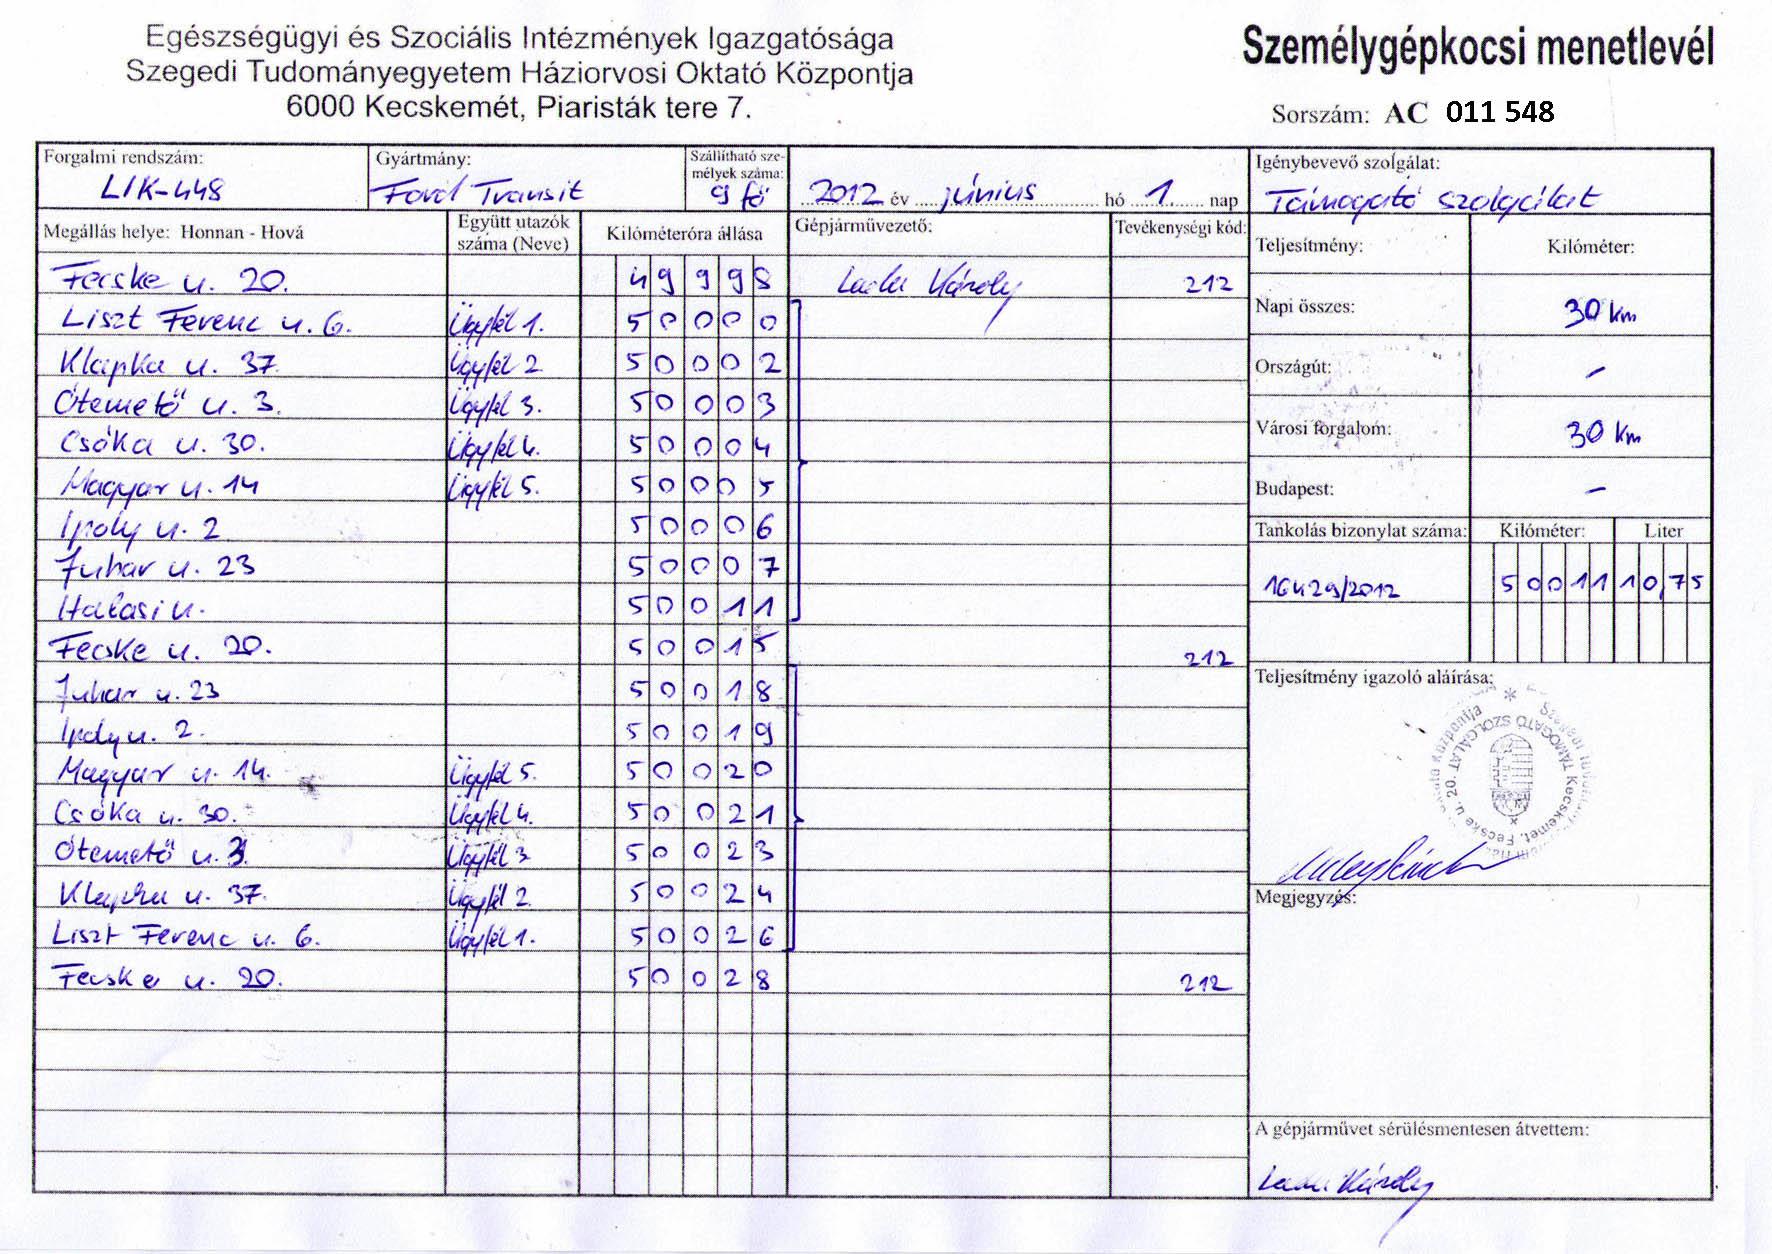 Egészségügyi és Szociális Intézmények Igazgatósága
Szegedi Tudományegyetem Háziorvosi Oktató Központja
6000 Kecskemét, Piaristák tere 7.
Személygépkocsi menetlevél
Sorszám: AC 011 548
Forgalmi rendszám: LIK-448
Gyártmány: Ford Transit
Szállítható sze-
mélyek száma: 9 fő
2012 év június hó 1. nap
Igénybevevő szolgálat:
Támogató szolgálat
Megállás helye: Honnan - Hová
Együtt utazók
száma (Neve)
Kilóméteróra állása
Gépjárművezető:
Tevékenységi kód:
Teljesítmény: Kilóméter:
Fecske u. 20. 49998 Károly 212
Liszt Ferenc u. 6. Ügyfél 1. 50000
Klapka u. 37. Ügyfél 2 50002
Ótemető u. 3. Ügyfél 3. 50003
Csóka u. 30. Ügyfél 4. 50004
Magyar u. 14 Ügyfél 5. 50005
Ipoly u. 2 50006
Juhar u. 23 50007
Halasi u. 50011
Fecske u. 20. 50015 212
Juhar u. 23 50018
Ipoly u. 2. 50019
Magyar u. 14. Ügyfél 5. 50020
Csóka u. 30. Ügyfél 4. 50021
Ótemető u. 3 Ügyfél 3. 50023
Klapka u. 37. Ügyfél 2. 50024
Liszt Ferenc u. 6. Ügyfél 1. 50026
Fecske u. 20. 50028 212
Napi összes: 30 km
Országút: -
Városi forgalom: 30 km
Budapest: -
Tankolás bizonylat száma: Kilóméter: Liter
16429/2012 50011 10,75
Teljesítmény igazoló aláírása:
TÁMOGATÓ SZOLGÁLAT
Kecskemét, Fecske u. 20.
Megjegyzés:
A gépjárművet sérülésmentesen átvettem:
Károly